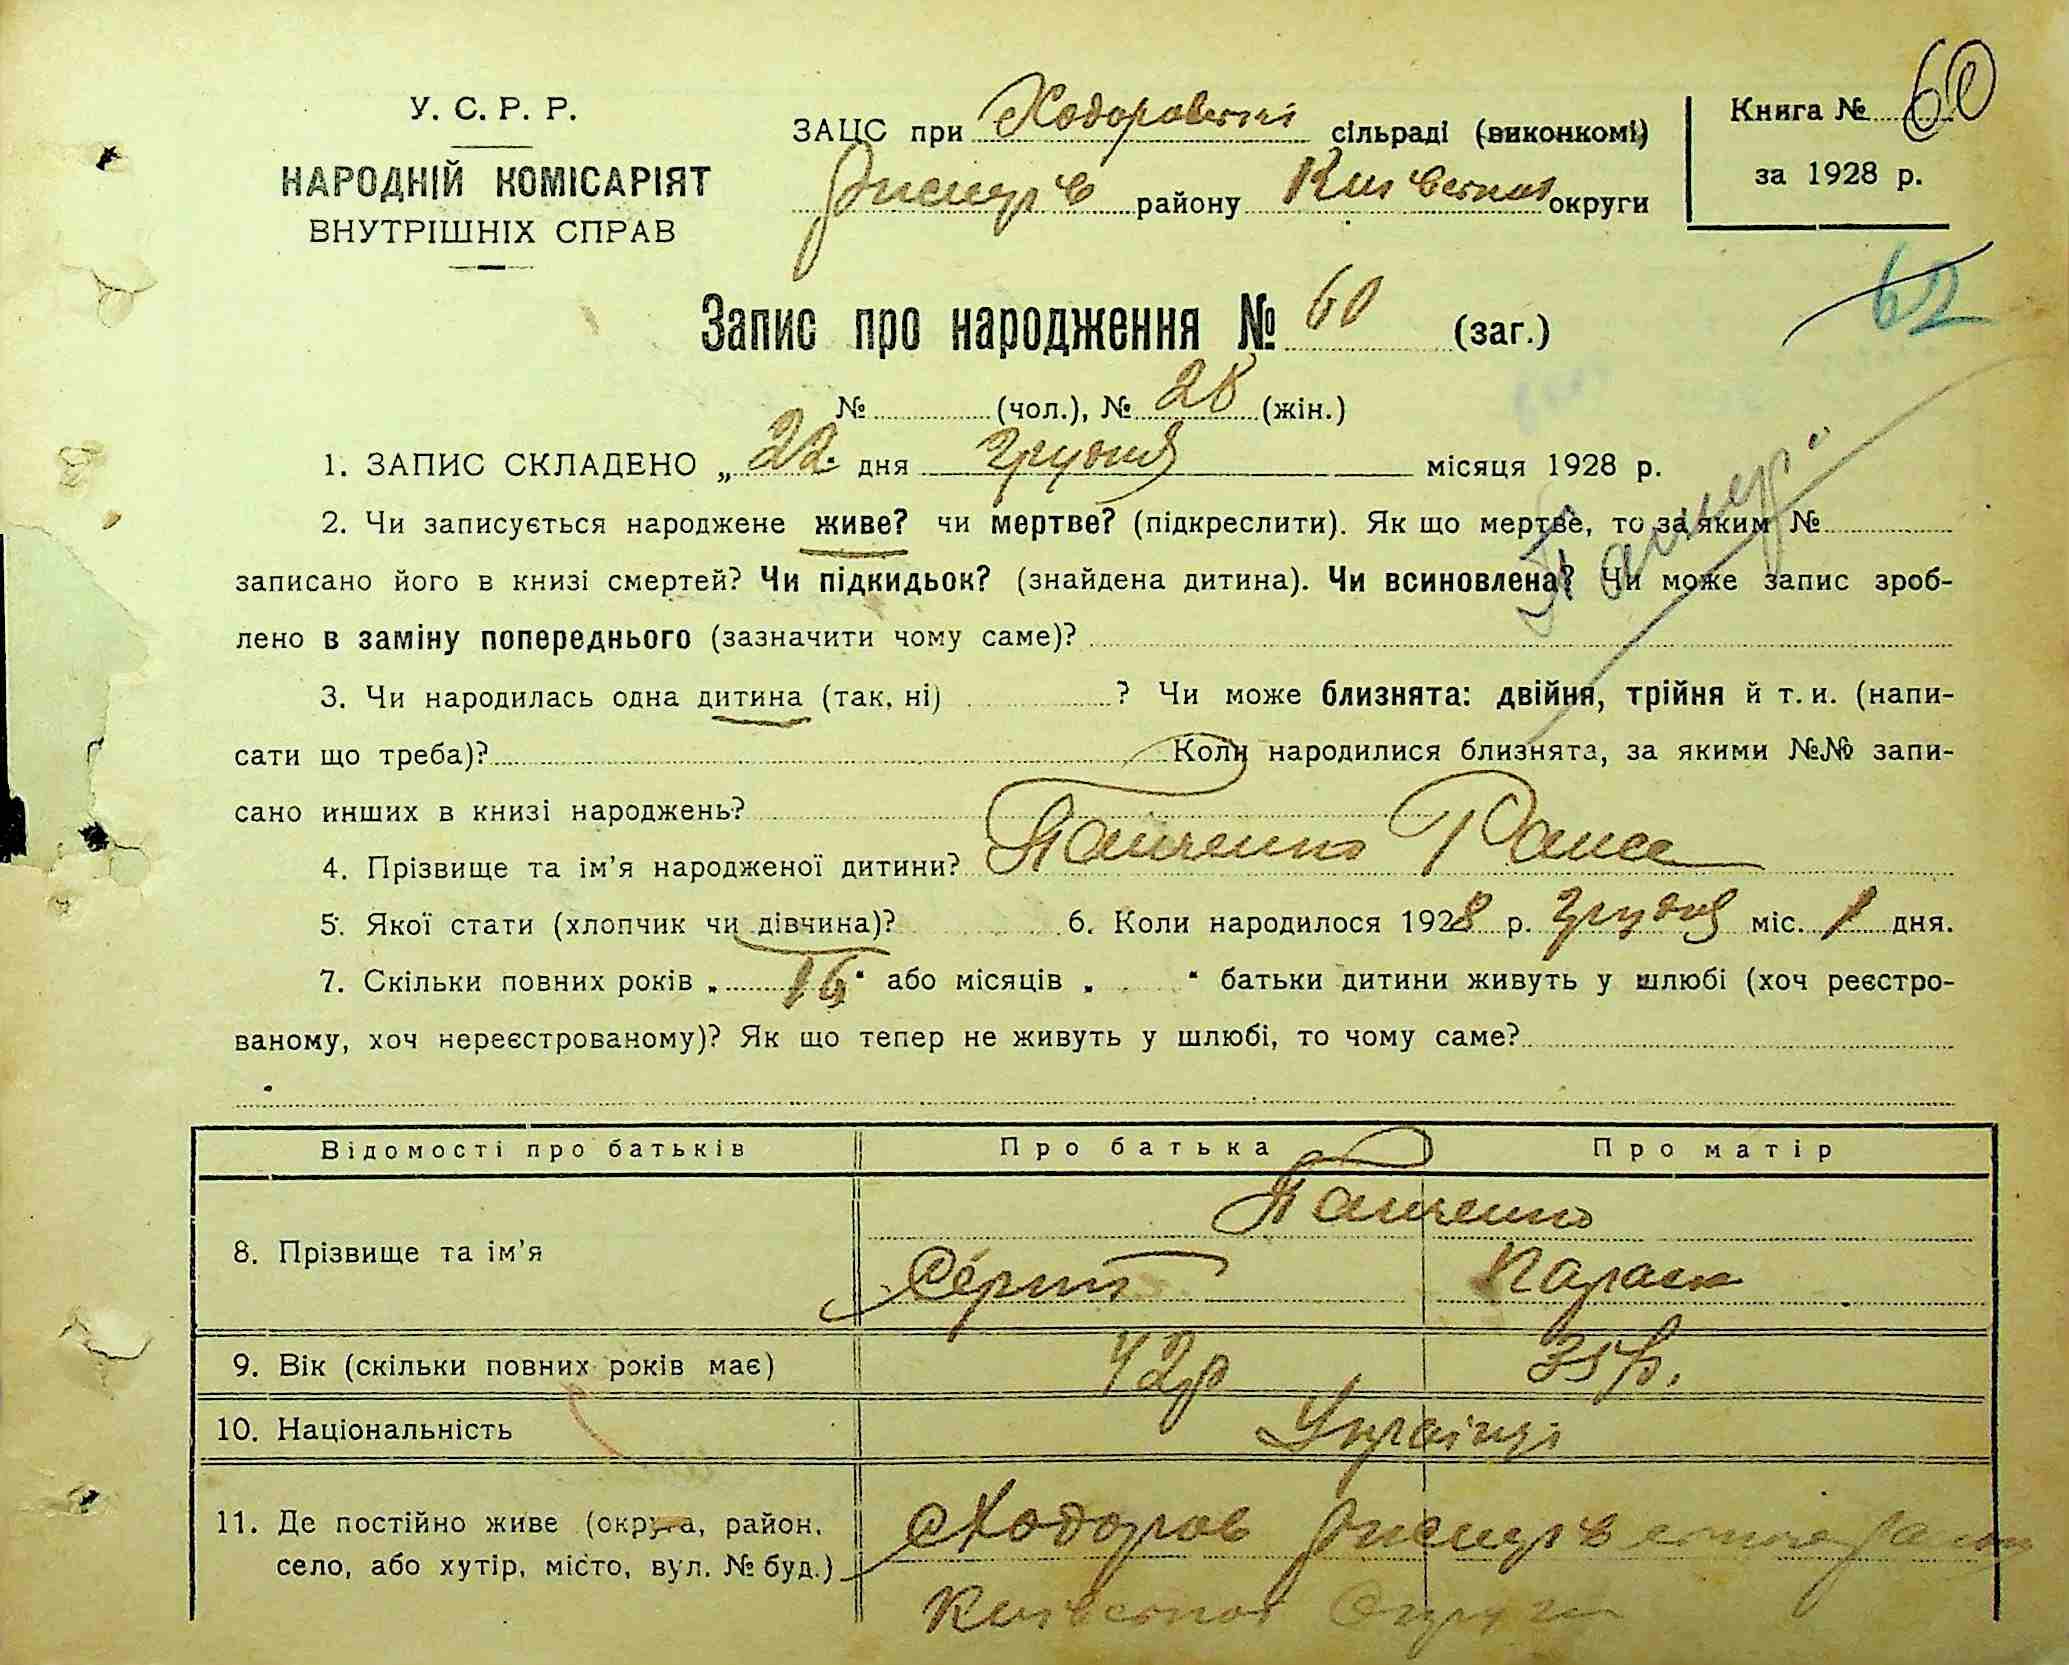 У. С. Р. Р.
НАРОДНІЙ КОМІСАРІЯТ
ВНУТРІШНІХ СПРАВ
ЗАЦС при Ходоровській сільраді (виконкомі)
Ржищів району Київської округи
Книга № 60
за 1928 р.
62
Запис про народження № 60 (заг.)
№ (чол.), № 28 (жін.)
1. ЗАПИС СКЛАДЕНО „ 22 дня грудня місяця 1928 р.
2. Чи записується народжене живе? чи мертве? (підкреслити). Як що мертве, то за яким №
записано його в книзі смертей? Чи підкидьок? (знайдена дитина). Чи всиновлена? Чи може запис зроб-
лено в заміну попереднього (зазначити чому саме)?
3. Чи народилась одна дитина (так, ні) ? Чи може близнята: двійня, трійня й т. и. (напи-
сати що треба)? Коли народилися близнята, за якими №№ запи-
сано инших в книзі народжень?
4. Прізвище та ім’я народженої дитини? Панченко Раиса
5. Якої стати (хлопчик чи дівчина)? 6. Коли народилося 1928 р. грудня міс. 1 дня.
7. Скільки повних років „ 16 “ або місяців „ “ батьки дитини живуть у шлюбі (хоч реєстро-
ваному, хоч нереєстрованому)? Як що тепер не живуть у шлюбі, то чому саме?
Відомості про батьків Про батька Про матір
8. Прізвище та ім’я Панченко
Сергій Параск
9. Вік (скільки повних років має) 42р 35р.
10. Національність Українці
11. Де постійно живе (округа, район, село, або хутір, місто, вул. № буд.)
с Ходоров Ржищівського району
Київської округи